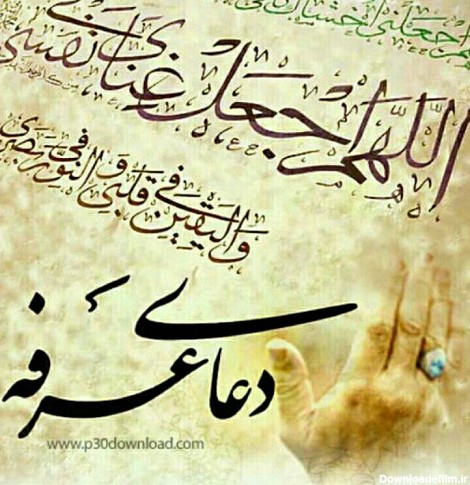 اجْعَلْني أَخْشاكَ
اَللّهُمَّ اجْعَلْ غِنايَ في نَفْسي
وَالْيَقينَ في قَلْبي وَ النُّورَ في بَصَري
دعای عرفه
www.p30download.com
Downloadefilm.ir